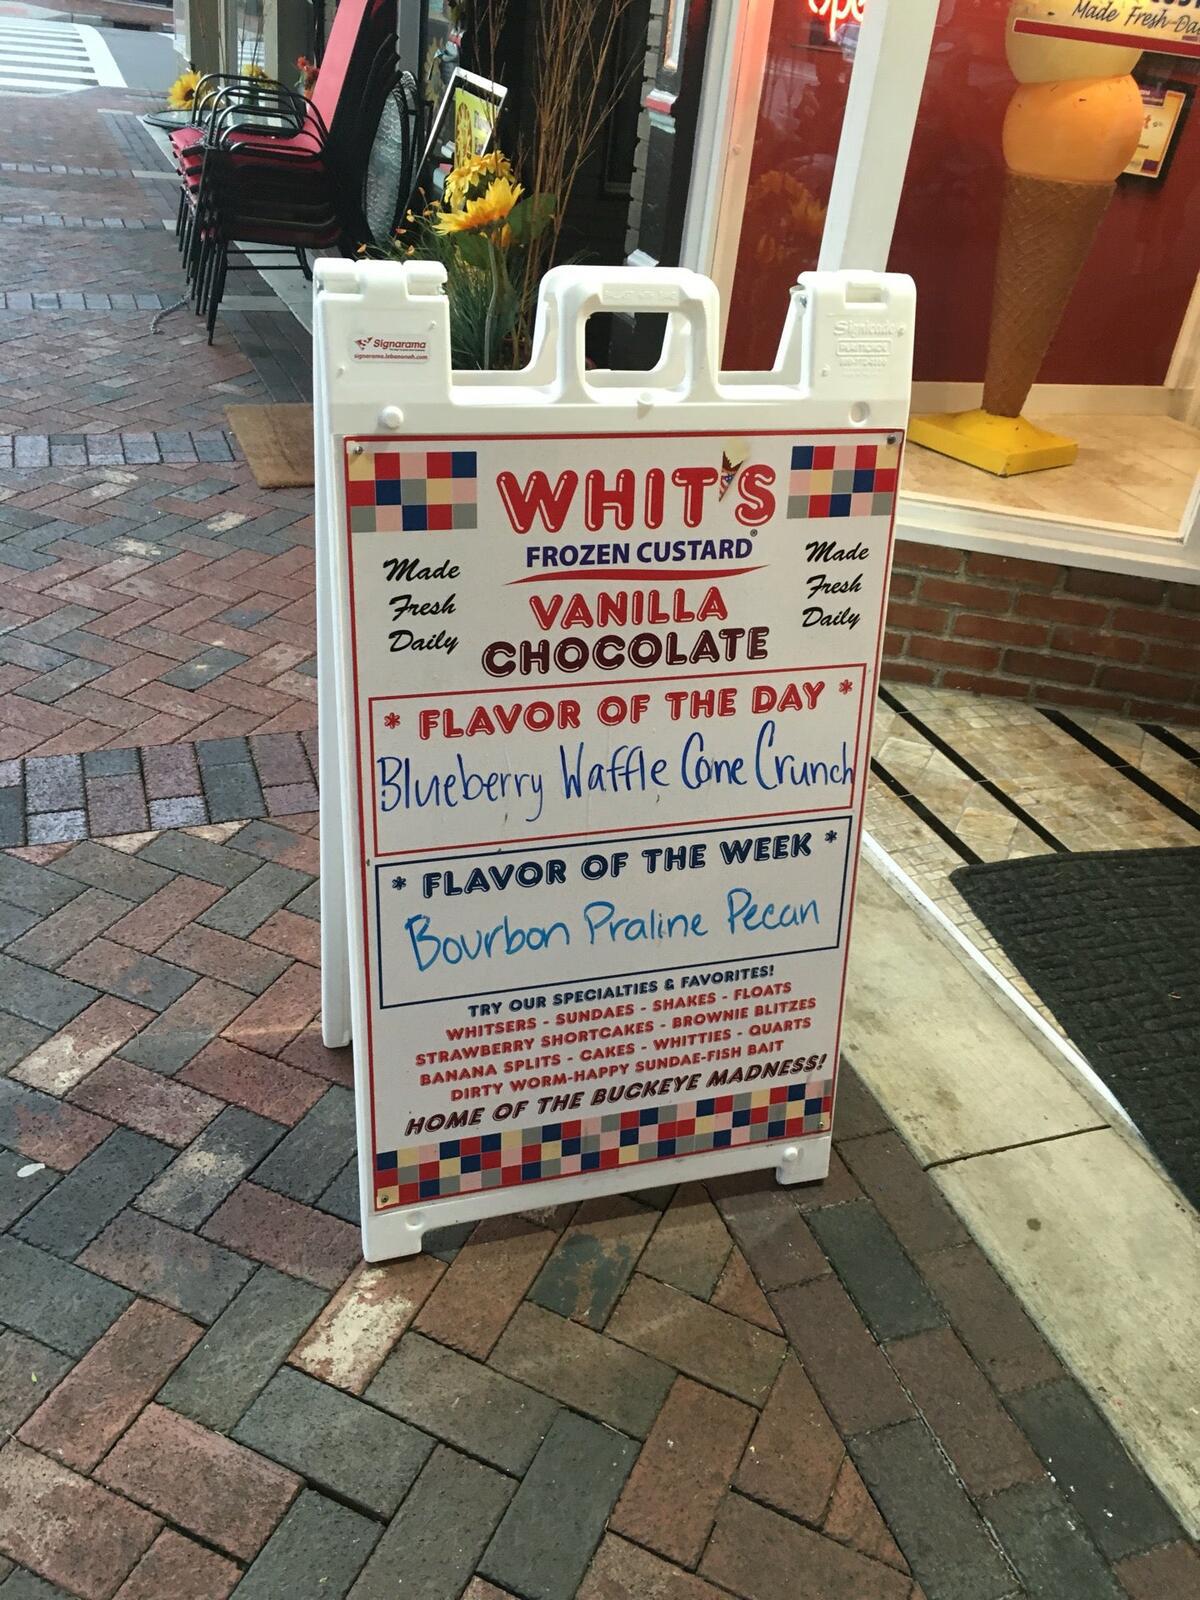 Open
Made Fresh
Signarama
signarama.lebanonoh.com
Signicade
WHIT'S
FROZEN CUSTARD®
Made
Fresh
Daily
Made
Fresh
Daily
VANILLA
CHOCOLATE
* FLAVOR OF THE DAY *
Blueberry Waffle Cone Crunch
* FLAVOR OF THE WEEK *
Bourbon Praline Pecan
TRY OUR SPECIALTIES & FAVORITES!
WHITSERS - SUNDAES - SHAKES - FLOATS
STRAWBERRY SHORTCAKES - BROWNIE BLITZES
BANANA SPLITS - CAKES - WHITTIES - QUARTS
DIRTY WORM-HAPPY SUNDAE-FISH BAIT
HOME OF THE BUCKEYE MADNESS!